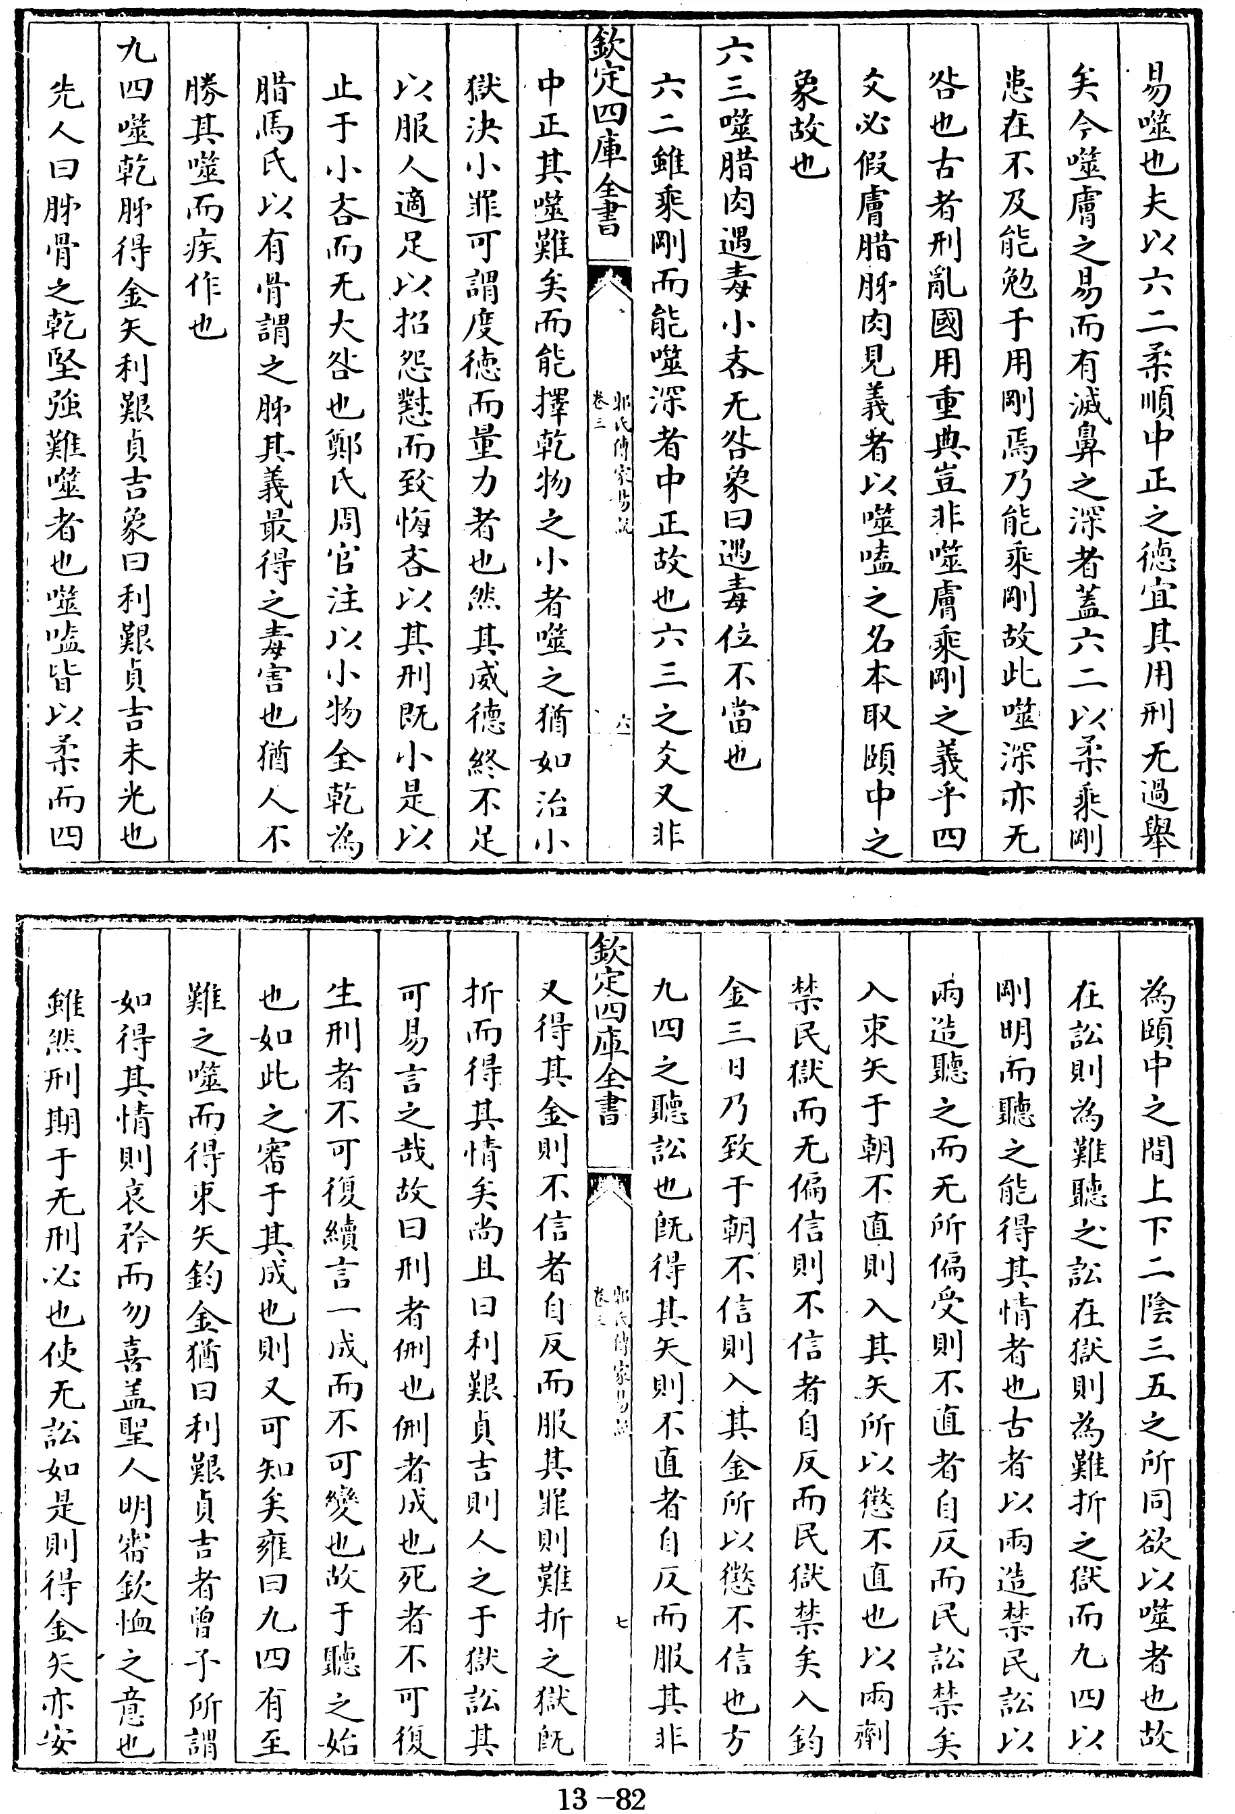 易噬也夫以六二柔順中正之德宜其用刑无過舉
矣今噬膚之易而有滅鼻之深者蓋六二以柔乘剛
患在不及能勉于用剛焉乃能乘剛故此噬深亦无
咎也古者刑亂國用重典豈非噬膚乘剛之義乎四
爻必假膚腊胏肉見義者以噬嗑之名本取頤中之
象故也
六三噬腊肉遇毒小吝无咎象曰遇毒位不當也
六二雖乘剛而能噬深者中正故也六三之爻又非
欽定四庫全書
郭氏傳家易説
卷三
六
中正其噬難矣而能擇乾物之小者噬之猶如治小
獄決小罪可謂度德而量力者也然其威德終不足
以服人適足以招怨懟而致悔吝以其刑既小是以
止于小吝而无大咎也鄭氏周官注以小物全乾為
腊馬氏以有骨謂之胏其義最得之毒害也猶人不
勝其噬而疾作也
九四噬乾胏得金矢利艱貞吉象曰利艱貞吉未光也
先人曰胏骨之乾堅強難噬者也噬嗑皆以柔而四
為頤中之間上下二陰三五之所同欲以噬者也故
在訟則為難聽之訟在獄則為難折之獄而九四以
剛明而聽之能得其情者也古者以兩造禁民訟以
兩造聽之而无所偏受則不直者自反而民訟禁矣
入束矢于朝不直則入其矢所以懲不直也以兩劑
禁民獄而无偏信則不信者自反而民獄禁矣入鈞
金三日乃致于朝不信則入其金所以懲不信也方
九四之聽訟也既得其矢則不直者自反而服其非
欽定四庫全書
郭氏傳家易説
卷三
七
又得其金則不信者自反而服其罪則難折之獄既
折而得其情矣尚且曰利艱貞吉則人之于獄訟其
可易言之哉故曰刑者侀也侀者成也死者不可復
生刑者不可復續言一成而不可變也故于聽之始
也如此之審于其成也則又可知矣雍曰九四有至
難之噬而得束矢鈞金猶曰利艱貞吉者曾子所謂
如得其情則哀矜而勿喜蓋聖人明審欽恤之意也
雖然刑期于无刑必也使无訟如是則得金矢亦安
13-82